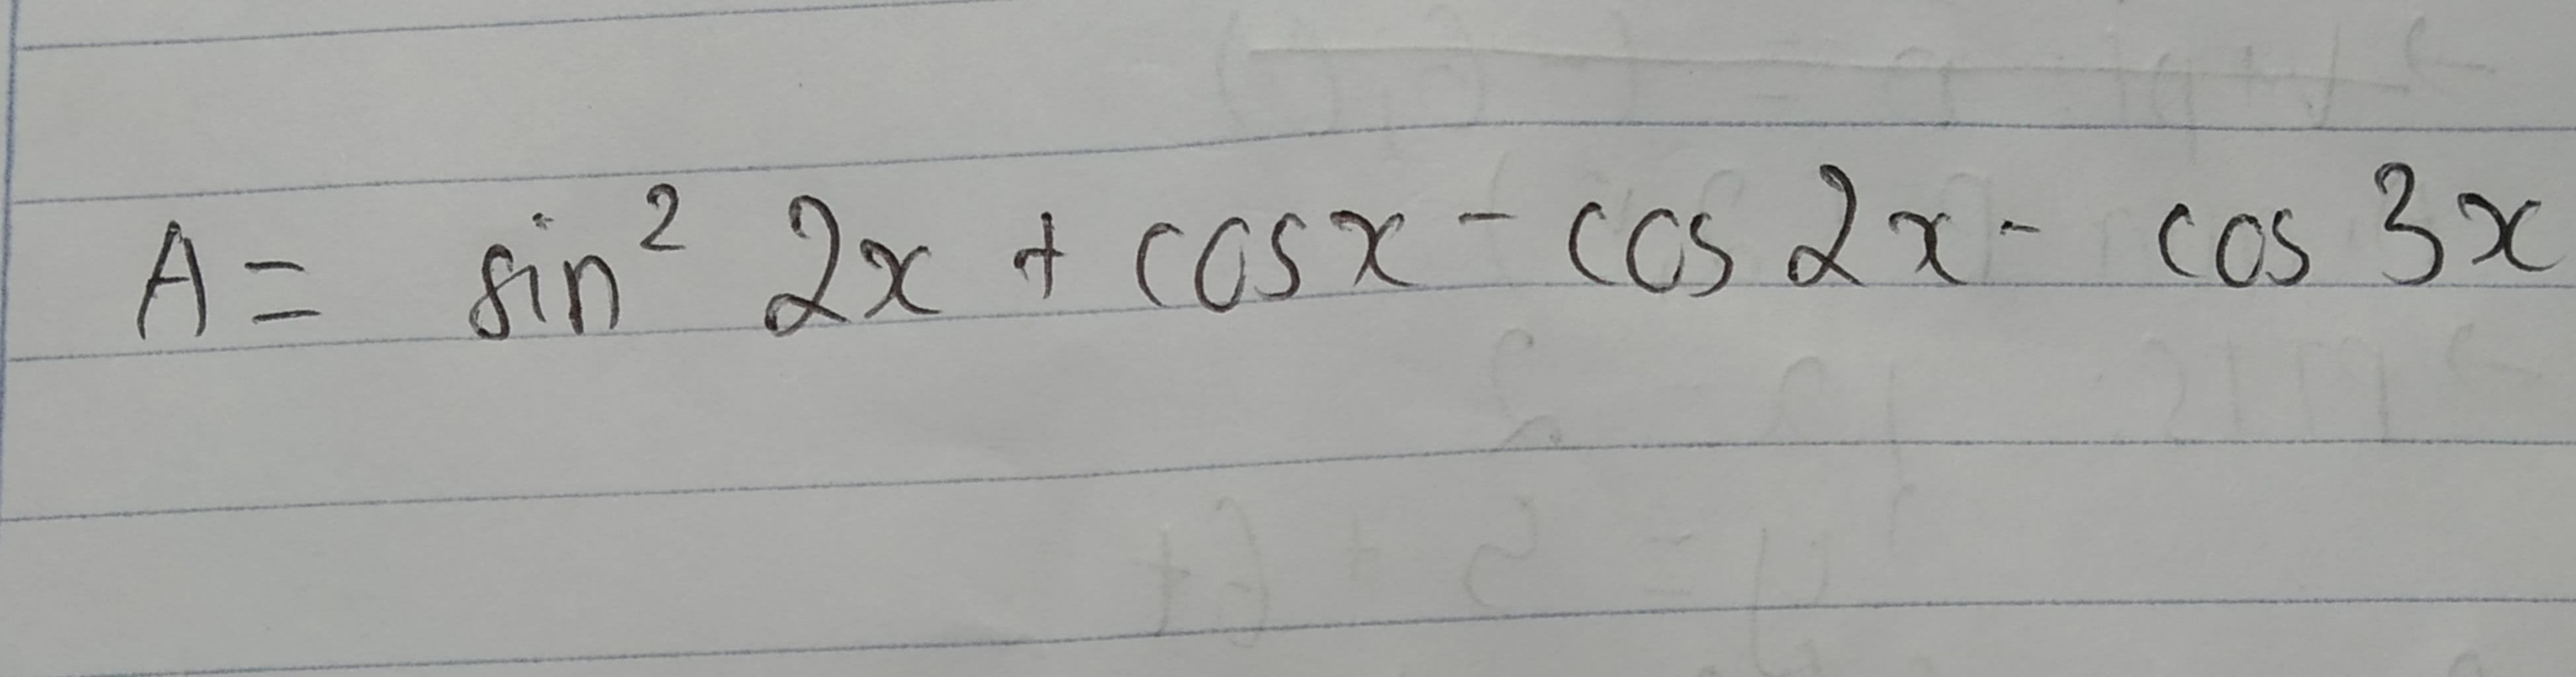 A = sin² 2x + cosx - cos 2x - cos 3x